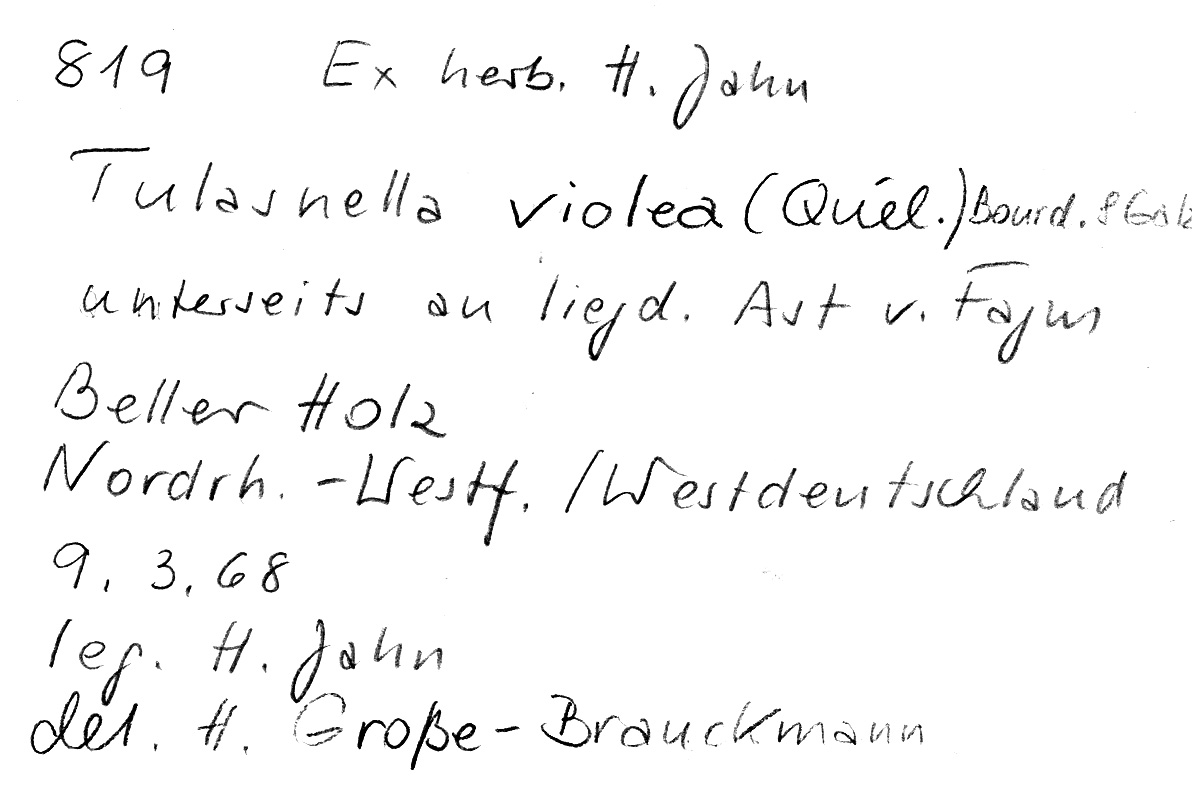 819 Ex herb. H. Jahn
Tulasnella violea (Quél.) Bourd. & Galz
unterseits an liegd. Ast v. Fagus
Beller Holz
Nordrh.-Westf. / Westdeutschland
9. 3. 68
leg. H. Jahn
det. H. Große-Brauckmann